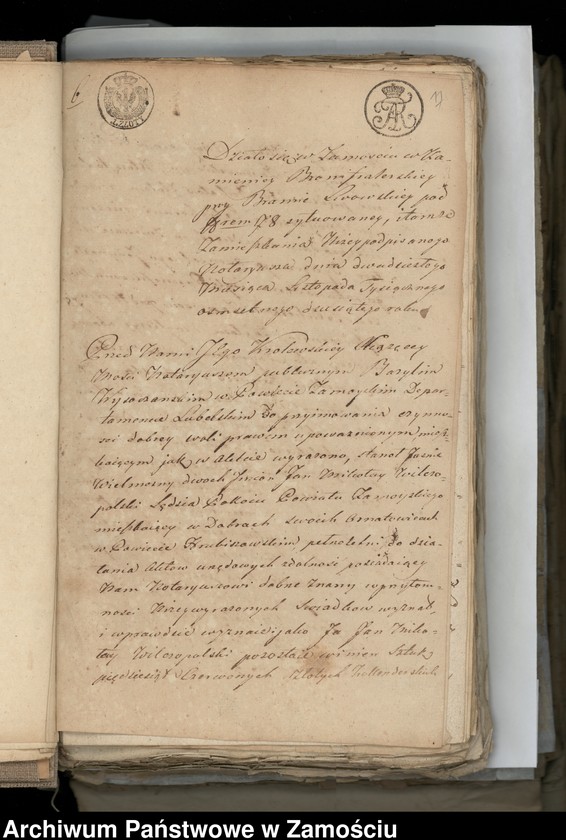 6.
1 ZŁOTY
11
Działo się w Zamościu w Ka-
mienicy
przy Bramie Lwowskiey pod
Nrem 78 sytuowaney, i tamże
Zamieszkania Niżey podpisanego
Notaryusza dnia dwudziestego
Miesiąca Listopada Tysiącznego
osmsetnego dziesiątego roku
Przed Nami Jego Krolewskiey Xiążęcey
Mości Notaryuszem publicznym Bazylim
Wysoczanskim w Powiecie Zamoyskim Depar-
tamencie Lubelskim do przyimowania czynno-
ści dobrey woli prawem upoważnionym miesz-
kaiącym jak w Akcie wyrażono, stanoł Jaśnie
Wielmożny dwoch Imion Jan Mikołay Wilczo-
polski Sędzia Pokoiu Powiatu Zamoyskiego
mieszkaiący w Dobrach swoich Ornatowicach
w Powiecie Hrubieszowskim pełnoletni, do dzia-
łania Aktow urzędowych zdolność posiadaiący
Nam Notaryuszowi dobrze znany w przytom-
ności Niżey wyrażonych Swiadkow wyznał,
i wprawdzie wyznaie iż jako Ja Jan Miko-
łay Wilczopolski pozostaie winien Sztuk
pięćdziesiąt Czerwonych Złotych Hollenderskich
Archiwum Państwowe w Zamościu